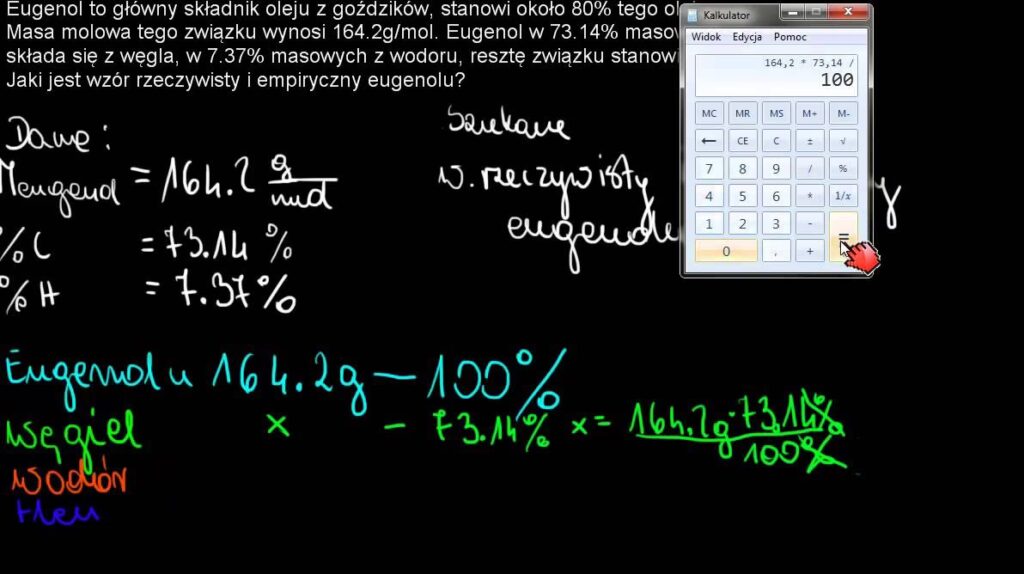 Eugenol to główny składnik oleju z goździków, stanowi około 80% tego
Masa molowa tego związku wynosi 164.2g/mol. Eugenol w 73.14%
składa się z węgla, w 7.37% masowych z wodoru, resztę związku
Jaki jest wzór rzeczywisty i empiryczny eugenolu?
Kalkulator
Widok Edycja Pomoc
164,2 * 73,14 /
100
MC MR MS M+ M-
← CE C ± √
7 8 9 / %
4 5 6 * 1/x
1 2 3 - =
0 , +
Dane:
Szukane
Meugenol = 164.2 g/mol
w. rzeczywisty
%C = 73.14 %
%H = 7.37%
Eugenolu 164.2g – 100%
węgiel x – 73.14% x = 164.2g · 73.14% / 100%
wodór
tlen